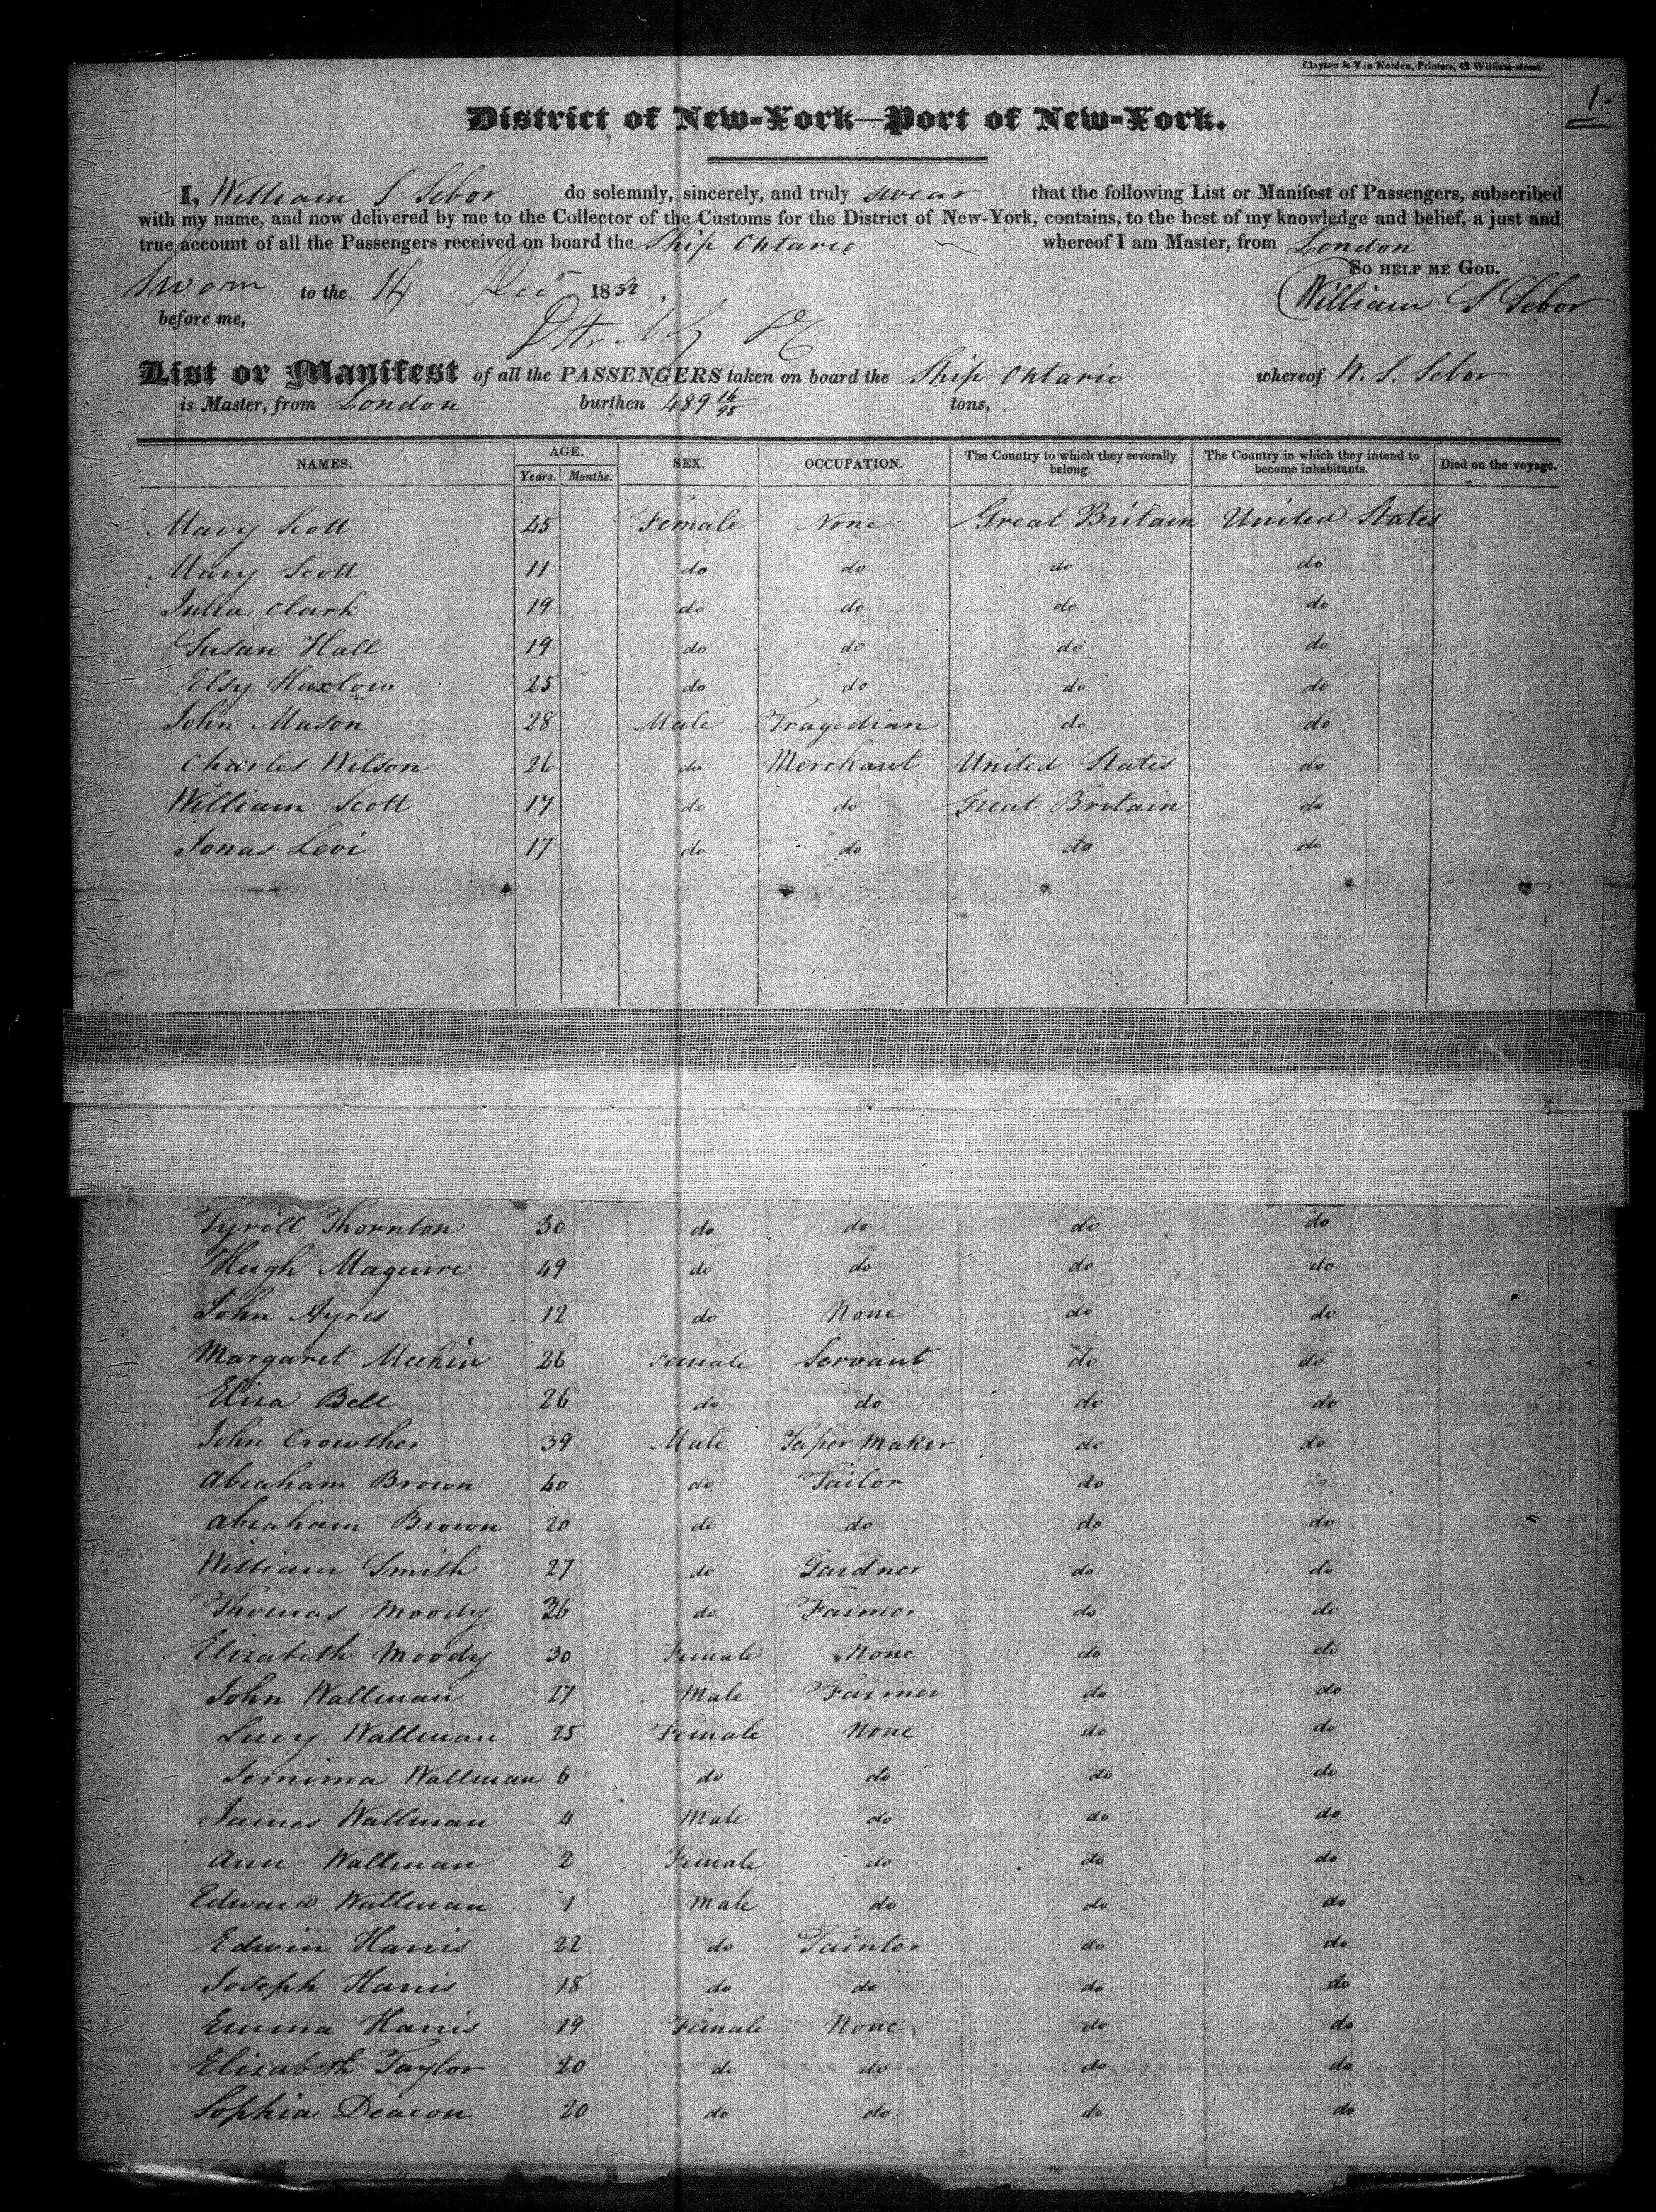 Clayton & Van Norden, Printers, 42 William-street.
1.
District of New-York—Port of New-York.
I, William S Sebor do solemnly, sincerely, and truly swear that the following List or Manifest of Passengers, subscribed
with my name, and now delivered by me to the Collector of the Customs for the District of New-York, contains, to the best of my knowledge and belief, a just and
true account of all the Passengers received on board the Ship Ontario whereof I am Master, from London
So help me God.
Sworn to the 14 Dec 1832
William S Sebor
before me,
List or Manifest of all the PASSENGERS taken on board the Ship Ontario whereof W. S. Sebor
is Master, from London burthen 489 16/95 tons,
NAMES. AGE. SEX. OCCUPATION. The Country to which they severally belong. The Country in which they intend to become inhabitants. Died on the voyage.
Years. Months.
Mary Scott 45 Female None Great Britain United States
Mary Scott 11 do do do do
Julia Clark 19 do do do do
Susan Hall 19 do do do do
Elsy Haxlow 25 do do do do
John Mason 28 Male Tragedian do do
Charles Wilson 26 do Merchant United States do
William Scott 17 do do Great Britain do
Jonas Levi 17 do do do do
Tyrell Thornton 30 do do do do
Hugh Maguire 49 do do do do
John Ayres 12 do None do do
Margaret Meehin 26 Female Servant do do
Eliza Bell 26 do do do do
John Crowther 39 Male Paper Maker do do
Abraham Brown 40 do Tailor do do
Abraham Brown 20 do do do do
William Smith 27 do Gardner do do
Thomas Moody 36 do Farmer do do
Elizabeth Moody 30 Female None do do
John Wallman 27 Male Farmer do do
Lucy Wallman 25 Female None do do
Jemima Wallman 6 do do do do
James Wallman 4 Male do do do
Ann Wallman 2 Female do do do
Edward Wallman 1 Male do do do
Edwin Harris 22 do Painter do do
Joseph Harris 18 do do do do
Emma Harris 19 Female None do do
Elizabeth Taylor 20 do do do do
Sophia Deacon 20 do do do do